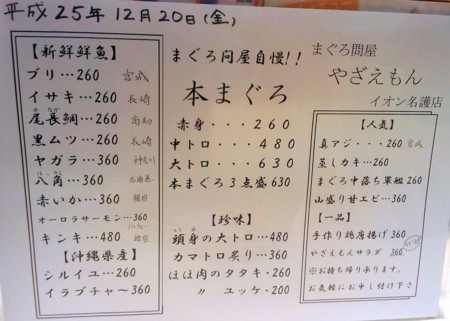 平成25年12月20日(金)
【新鮮鮮魚】
ブリ…260 宮城
イサキ…260 長崎
尾長鯛…260 高知
黒ムツ…260 長崎
ヤガラ…360 神奈川
八角…360 北海道
赤いか…360
オーロラサーモン…360
キンキ…480
【沖縄県産】
シルイユ…260
イラブチャ〜360
まぐろ問屋自慢!!
本まぐろ
赤身・・・260
中トロ・・・480
大トロ・・・630
本まぐろ3点盛630
【珍味】
頭身の大トロ…480
カマトロ炙り…360
ほほ肉のタタキ・260
〃 ユッケ・200
まぐろ問屋
やざえもん
イオン名護店
【人気】
真アジ・・・260 宮城
蒸しカキ…260
まぐろ中落ち軍艦260
山盛り甘エビ…360
【一品】
手作り鶏唐揚げ360
やざえもんサラダ 360
※お持ち帰り承ります。
お気軽にお申し付け下さ